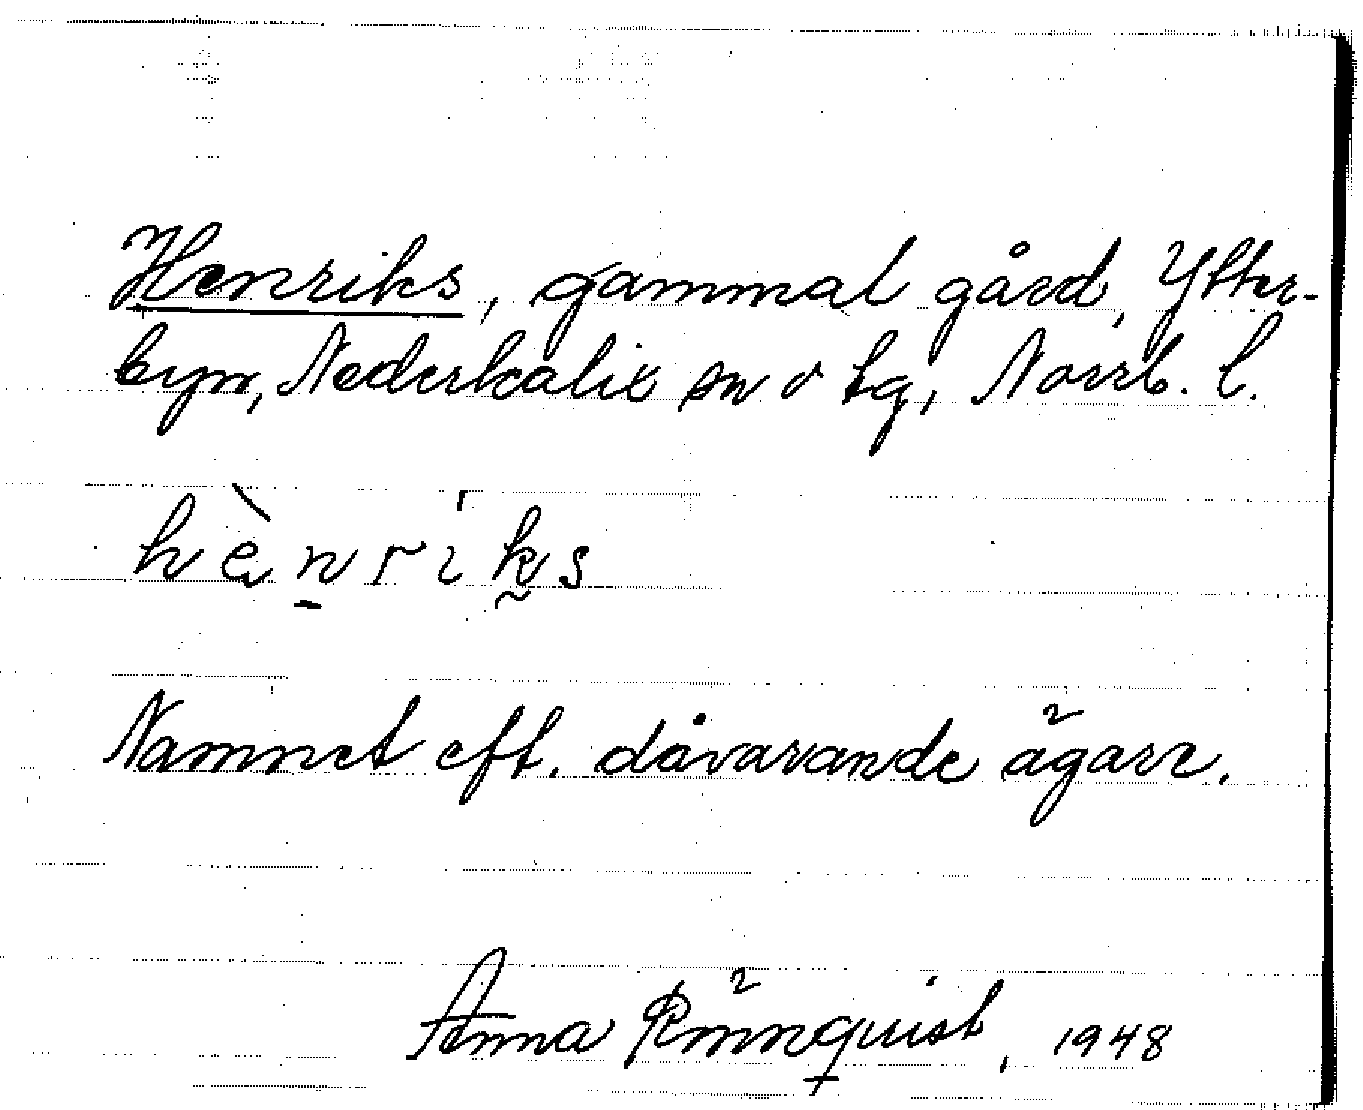 Henriks, gammal gård, Ytter-
byn, Nederkalix sn o tg, Norrb. l.
hènriks
Namnet eft. dåvarande ägare.
Anna Rönnquist, 1948